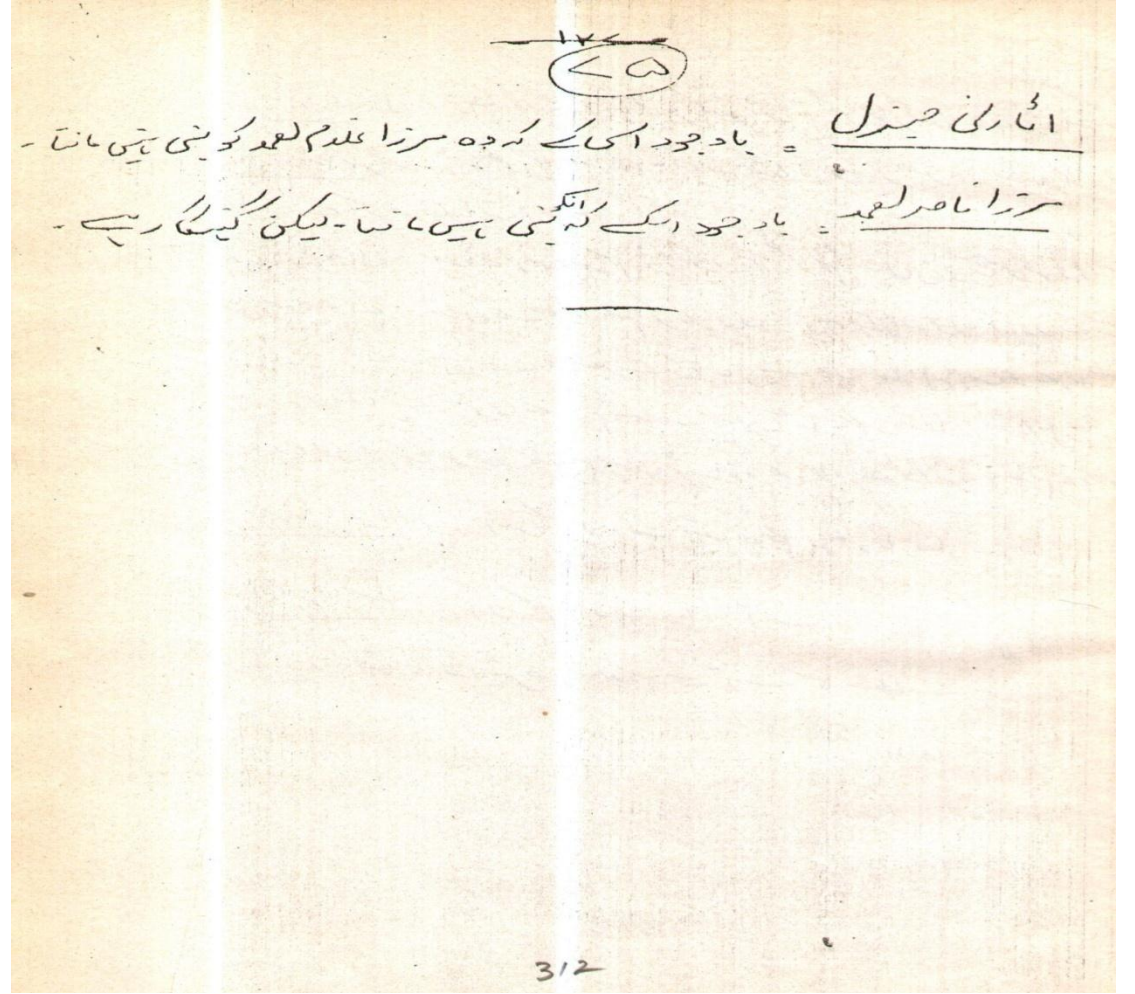 ۷۵
اٹارنی جنرل = باوجود اسکے کہ وہ مرزا غلام احمد کو نبی نہیں مانتا ۔
مرزا ناصر احمد = باوجود اسکے کہ انکو نبی نہیں مانتا ۔ لیکن گنہگار ہے ۔
312